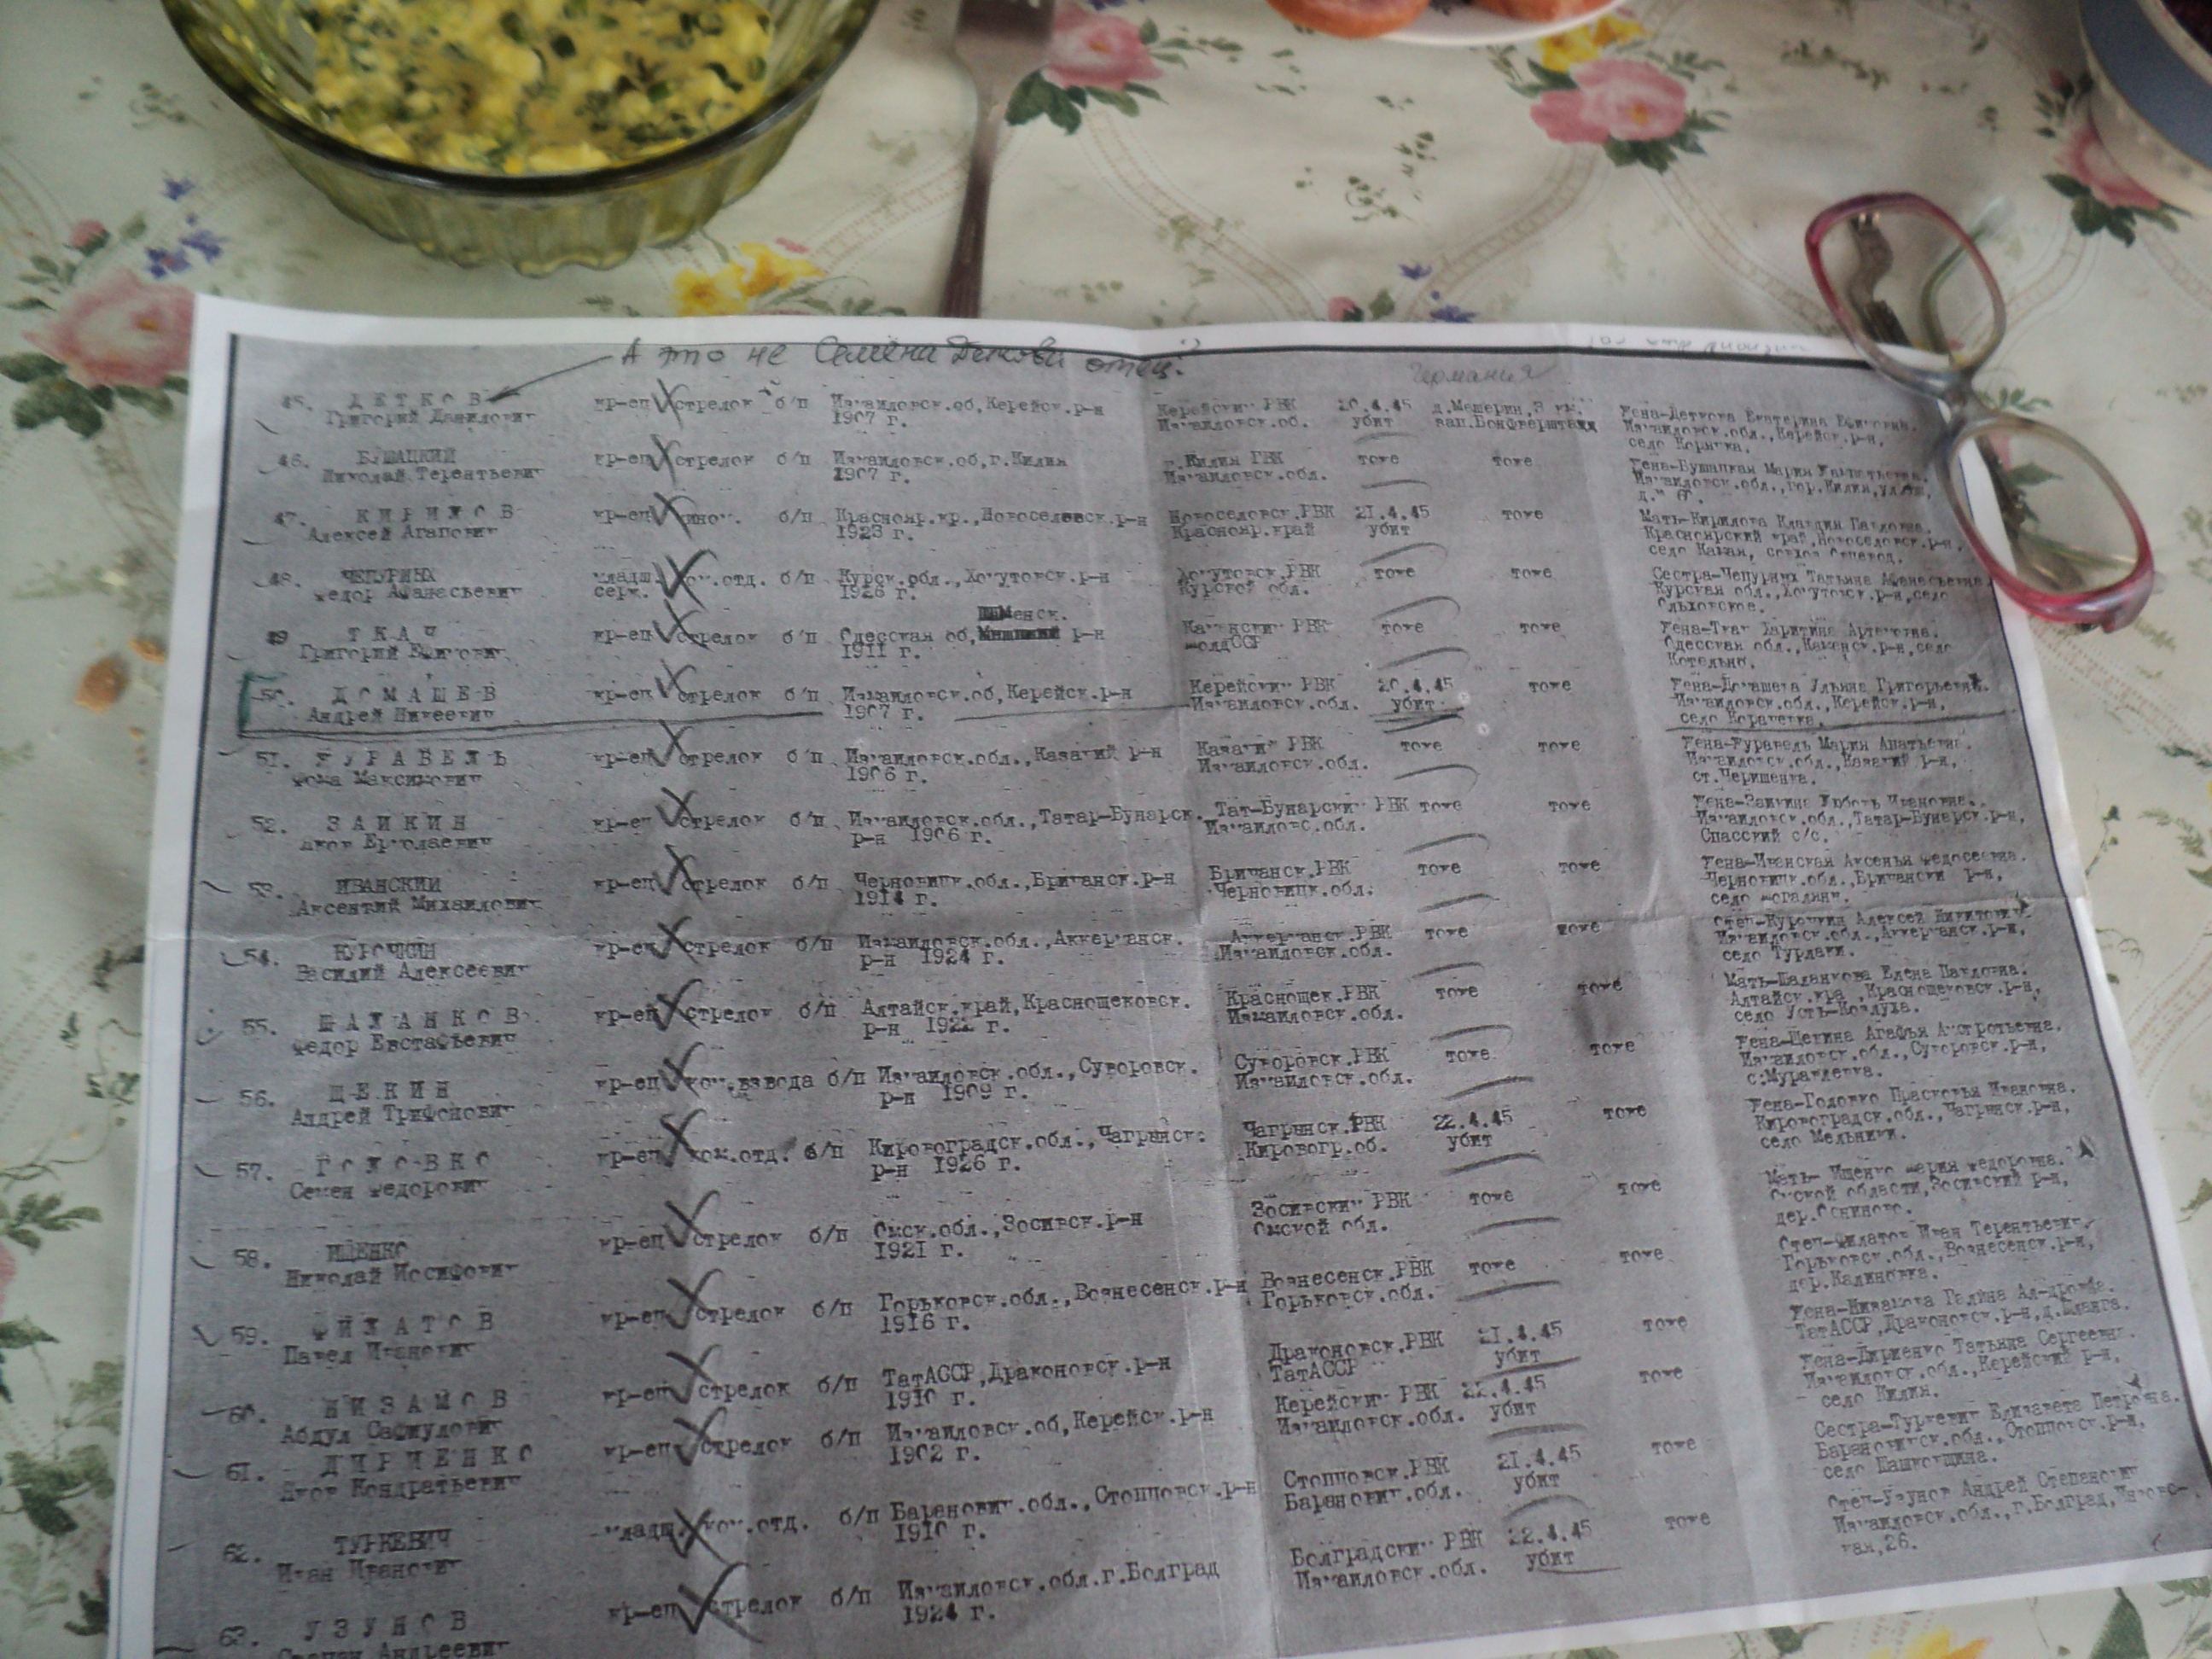 А это не Семёна Деткова отец?
Германия
45. ДЕТКОВ кр-ец стрелок б/п Измаиловск.об,Керейск.р-н Керейский РВК 20.4.45 д.Мешерин,3 км. Жена-Деткова Екатерина Ефимовна.
Григорий Данилович 1907 г. Измаиловск.об. убит зап. Измаиловск.обл.,Керейск.р-н,
село
46. БУШАЦКИЙ кр-ец стрелок б/п Измаиловск.об,г.Килия г.Килия РВК тоже тоже Жена-Бушацкая Мария
Николай Терентьевич 1907 г. Измаиловск.обл. Измаиловск.обл.,гор.Килия,
47. КИРИЛОВ кр-ец б/п Краснояр.кр.,Новоселовск.р-н Новоселовск.РВК 21.4.45 тоже Мать-Кирилова Клавдия Павловна.
Алексей Агапович 1923 г. Краснояр.край убит Красноярский край,Новоселовск.р-н,
село
48. ЧЕПУРНЫХ младш. ком.отд. б/п Курск.обл.,Хомутовск.р-н Хомутовск.РВК тоже тоже Сестра-Чепурных Татьяна Афанасьевна
Федор Афанасьевич серж. 1926 г. Курской обл. Курская обл.,Хомутовск.р-н,село
Ольховское.
49 ТКАЧ кр-ец стрелок б/п Одесская об, Каменск. р-н Каменский РВК тоже тоже Жена-Ткач Харитина Артемовна.
Григорий Ефимович 1911 г. МолдССР Одесская обл.,Каменск.р-н,село
Котельно.
50. ДОМАШЕВ кр-ец стрелок б/п Измаиловск.об,Керейск.р-н Керейский РВК 20.4.45 тоже Жена-Домашева Ульяна Григорьевна.
Андрей 1907 г. Измаиловск.обл. убит Измаиловск.обл.,Керейск.р-н,
село
51. ЖУРАВЕЛЬ кр-ец стрелок б/п Измаиловск.обл.,Казачий р-н Казачий РВК тоже тоже Жена-Журавель Мария
Фома Максимович 1906 г. Измаиловск.обл. Измаиловск.обл.,Казачий р-н,
52. ЗАИКИН кр-ец стрелок б/п Измаиловск.обл.,Татар-Бунарск. Тат-Бунарский РВК тоже тоже Жена-Заикина Любовь Ивановна.
Яков Ермолаевич р-н 1906 г. Измаиловс.обл. Измаиловск.обл.,Татар-Бунарск.р-н,
Спасский с/с.
53. ИВАНСКИЙ кр-ец стрелок б/п Черновицк.обл.,Бричанск.р-н Бричанск.РВК тоже тоже Жена-Иванская Аксенья Федосеевна.
Аксентий Михайлович 1914 г. Черновицк.обл. Черновицк.обл.,Бричански р-н,
село
54. КУРОЧКИН кр-ец стрелок б/п Измаиловск.обл.,Аккерманск. Аккерманск.РВК тоже тоже Отец-Курочкин Алексей Никитович.
Василий Алексеевич р-н 1924 г. Измаиловск.обл. Измаиловск.обл.,Аккерманск.р-н,
село Турлаки.
55. ШАЛАНКОВ кр-ец стрелок б/п Алтайск.край,Краснощековск. Краснощек.РВК тоже тоже Мать-Шаланкова Елена Павловна.
Федор Евстафьевич р-н 1922 г. Измаиловск.обл. Алтайск.кра ,Краснощековск.р-н,
село Усть-Козлуха.
56. ЩЕКИН кр-ец ком.взвода б/п Измаиловск.обл.,Суворовск. Суворовск.РВК тоже тоже Жена-Щекина Агафья
Андрей Трифонович р-н 1909 г. Измаиловск.обл. Измаиловск.обл.,Суворовск.р-н,
с.Муравлевка.
57. ГОЛОВКО кр-ец ком.отд. б/п Кировоградск.обл.,Чагринск. Чагринск.РВК 22.4.45 тоже Жена-Головко Прасковья Ивановна.
Семен Федорович р-н 1926 г. Кировогр.об. убит Кировоградск.обл.,Чагринск.р-н,
село Мельники.
58. ИЩЕНКО кр-ец стрелок б/п Омск.обл.,Зосивск.р-н Зосивский РВК тоже тоже Мать- Ищенко Мария Федоровна.
Николай Иосифович 1921 г. Омской обл. Омской области,Зосивский р-н,
59. ФИЛАТОВ кр-ец стрелок б/п Горьковск.обл.,Вознесенск.р-н Вознесенск.РВК тоже тоже Отец-Филатов Иван Терентьевич
Павел Иванович 1916 г. Горьковск.обл. Горьковск.обл.,Вознесенск.р-н,
дер.Калиновка.
60. НИЗАМОВ кр-ец стрелок б/п ТатАССР,Драконовск.р-н Драконовск.РВК 21.4.45 тоже Жена-Низамова Галина Ал-дровна.
Абдул Сафиулович 1910 г. ТатАССР убит ТатАССР,Драконовск.р-н,
61. ДИРИЕНКО кр-ец стрелок б/п Измаиловск.об,Керейск.р-н Керейский РВК 22.4.45 тоже Жена-Дириенко Татьяна Сергеевна.
Яков Кондратьевич 1902 г. Измаиловск.обл. убит Измаиловск.обл.,Керейский р-н,
село Килия.
62. ТУРКЕВИЧ младш. ком.отд. б/п Баранович.обл.,Столповск.р-н Столповск.РВК 21.4.45 тоже Сестра-Туркевич Елизавета Петровна.
Иван Иванович 1910 г. Баранович.обл. убит Барановичск.обл.,Столповск.р-н,
село
63. УЗУНОВ кр-ец стрелок б/п Измаиловск.обл.г.Болград Болградский РВК 22.4.45 тоже Отец-Узунов Андрей Степанович
Степан Андреевич 1924 г. Измаиловск.обл. убит Измаиловск.обл.,г.Болград,